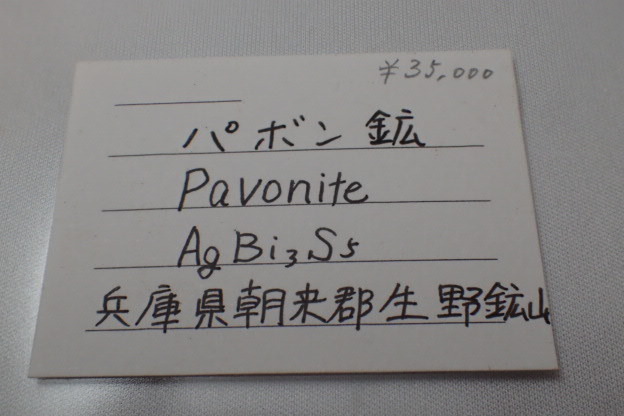 ¥35,000
パボン鉱
Pavonite
AgBi₃S₅
兵庫県朝来郡生野鉱山